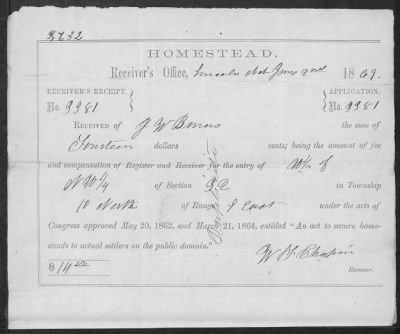 HOMESTEAD.
Receiver's Office, Lincoln Neb June 22nd 1869.
RECEIVER'S RECEIPT,
No. 3381
APPLICATION,
No. 3381
RECEIVED OF J W Burns the sum of
Fourteen dollars cents; being the amount of fee
and compensation of Register and Receiver for the entry of W½ of
NW¼ of Section 32 in Township
10 North of Range 9 East under the acts of
Congress approved May 20, 1862, and March 21, 1864, entitled "An act to secure home-
steads to actual settlers on the public domain."
Duplicate
$14
Receiver.